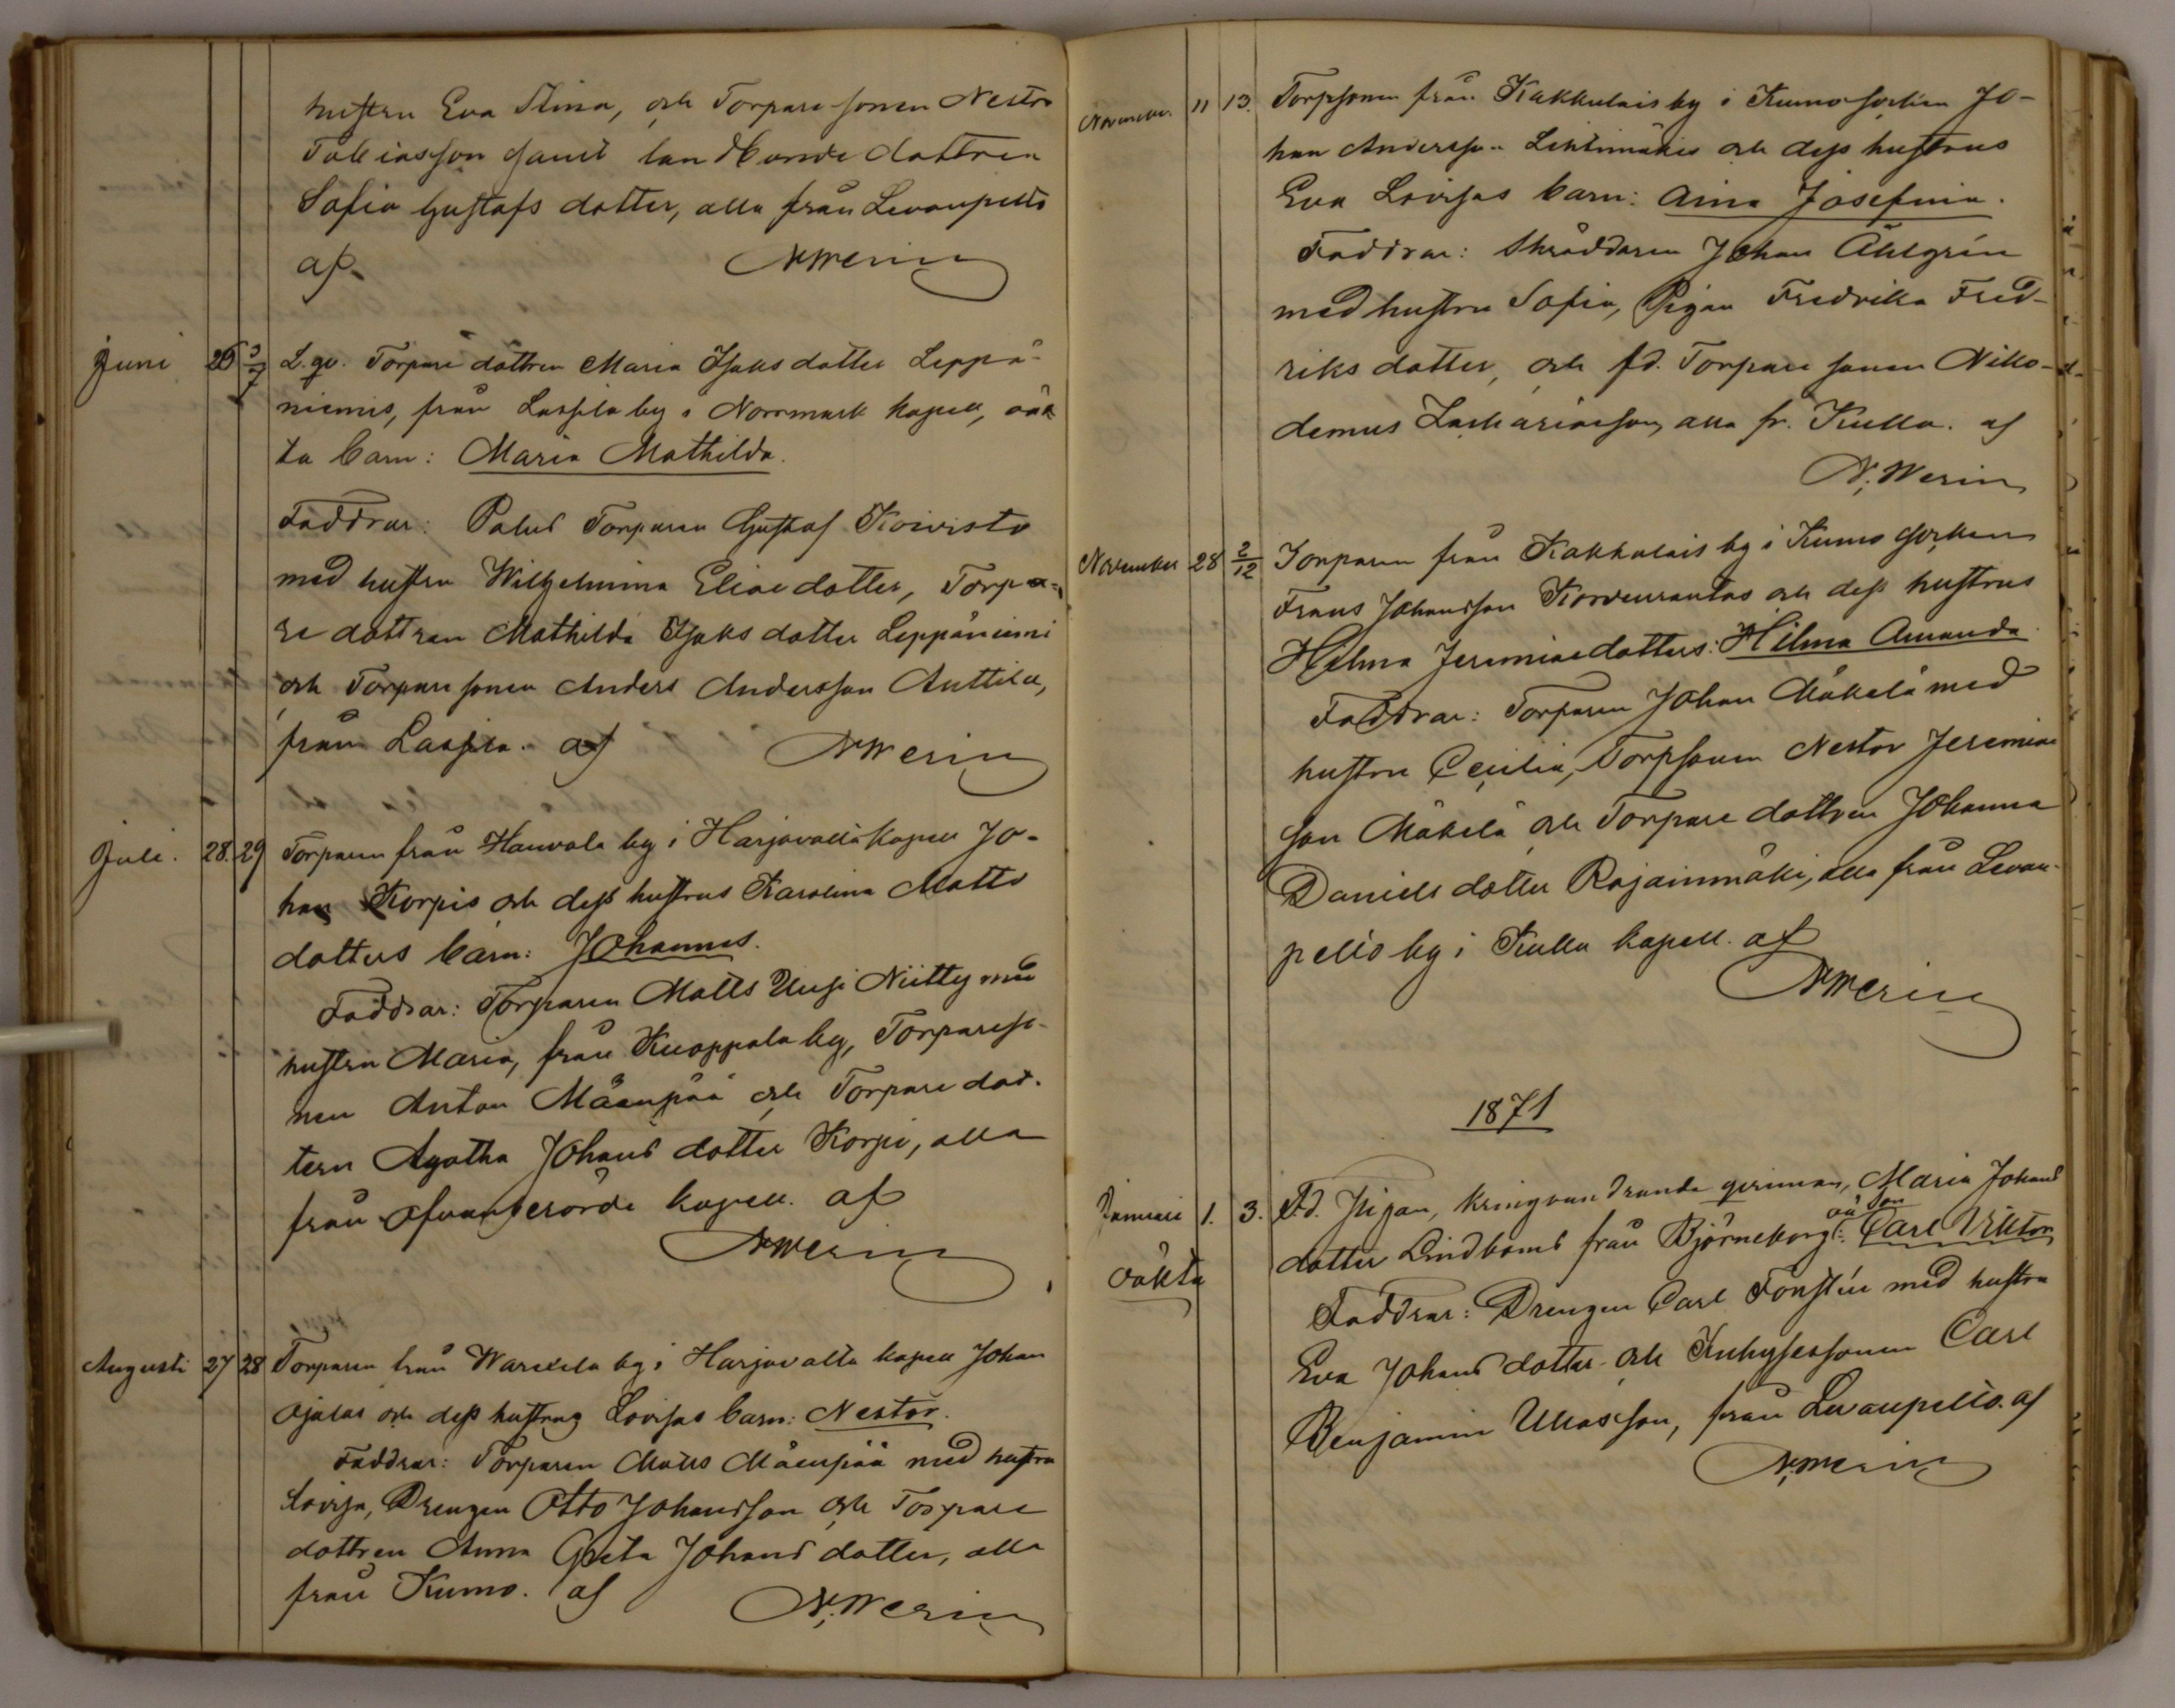 hustru Eva Stina, och Torpare sonen Nestor
Tobiasson samt landbonde dottren
Sofia Gustafs dotter, alla från Levanpelto
af NWerin
Juni 25 3/7 L.qv. Torpare dottren Maria Isaks dotter Leppä-
niemis, från Lassila by i Norrmark kapell, oäk
ta barn: Maria Mathilda.
Faddrar: Palus Torparen Gustaf Koivisto
med hustru Wilhelmina Eliae dotter, Torpa-
re dottren Mathilda Isaks dotter Leppäniemi
och Torpare sonen Anders Andersson Anttila,
från Lassila. af NWerin
Juli. 28. 29 Torparen från Hanvola by i Harjavalta kapell Jo-
han Korpis och dess hustrus Karolina Matts
dotters barn: Johannes.
Faddrar: Torparen Matts Uusi Niitty med
hustru Maria, från Knoppala by, Torpareso-
nen Anton Mäenpää och Torpare dot-
tern Agatha Johans dotter Korpi, alla
från kapell. af
NWerin
Augusti 27 28 Torparen från by i Harjavalta kapell Johan
Ojalas och dess hustrus Lovisas barn: Nestor.
Faddrar: Torparen Matts Mäenpää med hustru
Lovisa, Drengen Otto Johansson och Torpare
dottren Anna Greta Johans dotter, alla
från Kumo. af N.Werin
November 11 13. Torpsonen från Kakkulais by i Kumo socken Jo-
han Andersson Lehtimäkis och dess hustrus
Eva Lovisas barn: Aina Josefina.
Faddrar: Skräddaren Johan Åhlgrén
med hustru Sofia, Pigan Fredrika Fred-
riks dotter, och fd. Torpare sonen Niko-
demus Zachariasson, alla fr. Kulla. af
N.Werin
November 28 2/12 Torparen från Kakkulais by i Kumo socken
Frans Johansson Korvenrantas och dess hustrus
Hilma Jeremiaedotters: Hilma Amanda.
Faddrar: Torparen Johan Mäkelä med
hustru Cecilia, Torpsonen Nestor Jeremiae
son Mäkelä och Torpare dottren Johanna
Daniels dotter Rajainmäki, alla från Levan-
pelto by i Kulla kapell. af
NWerin
1871
Januari 1. 3. F.d. Pigan, kringvandrande qvinnan, Maria Johans
oä Son
dotter Lindboms från Björneborg: Carl Viktor
oäkta
Faddrar: Drengen Carl Forstén med hustru
Eva Johans dotter och Inhysessonen Carl
Benjamin Ukasson, från Levanpelto. af
N.Werin